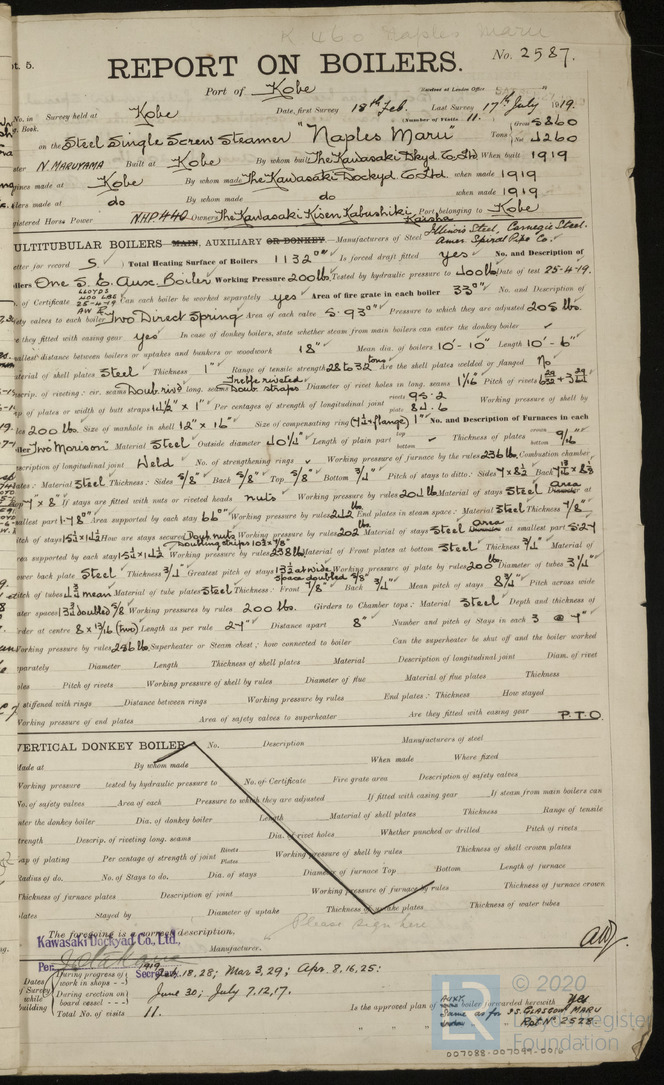 K 460 Naples Maru
pt. 5.
REPORT ON BOILERS.
No. 2587.
Port of Kobe
Received at London Office
No. in Survey held at Kobe Date, first Survey 18th Feb. Last Survey 17th July 1919.
Book. (Number of Visits 11.)
on the Steel Single Screw Steamer "Naples Maru" Tons Gross 5860 Net 4260
N. MARUYAMA Built at Kobe By whom built The Kawasaki Dkyd. Co. Ltd. When built 1919
made at Kobe By whom made The Kawasaki Dockyd. Co. Ltd. when made 1919
made at do By whom made do when made 1919
Registered Horse Power NHP 440 Owners The Kawasaki Kisen Kabushiki Kaisha Port belonging to Kobe
MULTITUBULAR BOILERS MAIN, AUXILIARY OR DONKEY.—Manufacturers of Steel Illinois Steel, Carnegie Steel. Amer Spiral Pipe Co.
Letter for record S. Total Heating Surface of Boilers 1132 Is forced draft fitted yes No. and Description of
Boilers One S. E. Aux. Boiler Working Pressure 200 lbs. Tested by hydraulic pressure to 400 lbs Date of test 25-4-19.
No. of Certificate LLOYDS 400 LBS 25-4-19 Can each boiler be worked separately yes Area of fire grate in each boiler 33 No. and Description of
safety valves to each boiler Two Direct Spring Area of each valve 5.93 Pressure to which they are adjusted 205 lbs.
Are they fitted with easing gear yes In case of donkey boilers, state whether steam from main boilers can enter the donkey boiler
Smallest distance between boilers or uptakes and bunkers or woodwork 18" Mean dia. of boilers 10'-10" Length 10'-6"
Material of shell plates Steel Thickness 1" Range of tensile strength 28 to 32 tons Are the shell plates welded or flanged No
Descrip. of riveting: cir. seams Doub. riv long. seams Treble riveted Doub straps Diameter of rivet holes in long. seams 1 1/16 Pitch of rivets
Lap of plates or width of butt straps 14 1/2" x 1" Per centages of strength of longitudinal joint rivets 95.2 plate 84.6 Working pressure of shell by
rules 200 lbs. Size of manhole in shell 12" x 16" Size of compensating ring (7 1/2 + flange) 1" No. and Description of Furnaces in each
boiler Two "Morison" Material Steel Outside diameter 40 1/4" Length of plain part top bottom Thickness of plates crown bottom 9/16
Description of longitudinal joint Weld No. of strengthening rings Working pressure of furnace by the rules 236 lb. Combustion chamber
plates: Material Steel Thickness: Sides 5/8" Back 5/8" Top 5/8" Bottom 3/4" Pitch of stays to ditto: Sides 7 x 8 1/2 Back
Top 7" x 8" If stays are fitted with nuts or riveted heads nuts Working pressure by rules 204 lb. Material of stays Steel Area at
smallest part 1.78 Area supported by each stay 66 Working pressure by rules 242 lbs. End plates in steam space: Material Steel Thickness 7/8
Pitch of stays 15 1/2 x 14 1/2 How are stays secured Doub nuts Working pressure by rules 202 lbs. Material of stays Steel area at smallest part 5.24
Area supported by each stay 15 1/2 x 14 1/2 Working pressure by rules 238 lbs Material of Front plates at bottom Steel Thickness 3/4" Material of
Lower back plate Steel Thickness 3/4 Greatest pitch of stays 13 3/4 at wide space doubled 5/8" Working pressure of plate by rules 200 lbs. Diameter of tubes 3 1/4"
Pitch of tubes 4 3/4 mean Material of tube plates Steel Thickness: Front 7/8" Back 3/4" Mean pitch of stays 8 3/4" Pitch across wide
water spaces 13 3/4 doubled 5/8 Working pressures by rules 200 lbs. Girders to Chamber tops: Material Steel Depth and thickness of
girder at centre 8 x 13/16 (two) Length as per rule 27" Distance apart 8" Number and pitch of Stays in each 3 @ 7"
Working pressure by rules 286 lb. Superheater or Steam chest; how connected to boiler Can the superheater be shut off and the boiler worked
separately Diameter Length Thickness of shell plates Material Description of longitudinal joint Diam. of rivet
holes Pitch of rivets Working pressure of shell by rules Diameter of flue Material of flue plates Thickness
If stiffened with rings Distance between rings Working pressure by rules End plates: Thickness How stayed
Working pressure of end plates Area of safety valves to superheater Are they fitted with easing gear
P.T.O.
VERTICAL DONKEY BOILER No. Description Manufacturers of steel
Made at By whom made When made Where fixed
Working pressure tested by hydraulic pressure to No. of Certificate Fire grate area Description of safety valves
No. of safety valves Area of each Pressure to which they are adjusted If fitted with easing gear If steam from main boilers can
enter the donkey boiler Dia. of donkey boiler Length Material of shell plates Thickness Range of tensile
strength Descrip. of riveting long. seams Dia. of rivet holes Whether punched or drilled Pitch of rivets
Lap of plating Per centage of strength of joint Rivets Plates Working pressure of shell by rules Thickness of shell crown plates
Radius of do. No. of Stays to do. Dia. of stays Diameter of furnace Top Bottom Length of furnace
Thickness of furnace plates Description of joint Working pressure of furnace by rules Thickness of furnace crown
plates Stayed by Diameter of uptake Thickness of uptake plates Thickness of water tubes
Please sign here
The foregoing is a correct description,
Kawasaki Dockyad Co., Ltd.,
Manufacturer.
Per. Secretary
Dates of Survey while building
During progress of work in shops - - 1919 Feb. 18, 28; Mar 3, 29; Apr. 8, 16, 25:
During erection on board vessel - - - June 30; July 7, 12, 17.
Total No. of visits 11.
Is the approved plan of AUX boiler forwarded herewith Yes
Same as for SS. GLASGOW MARU
Rpt. No 2528
© 2020
Lloyd's Register
Foundation
007088-007099-0010